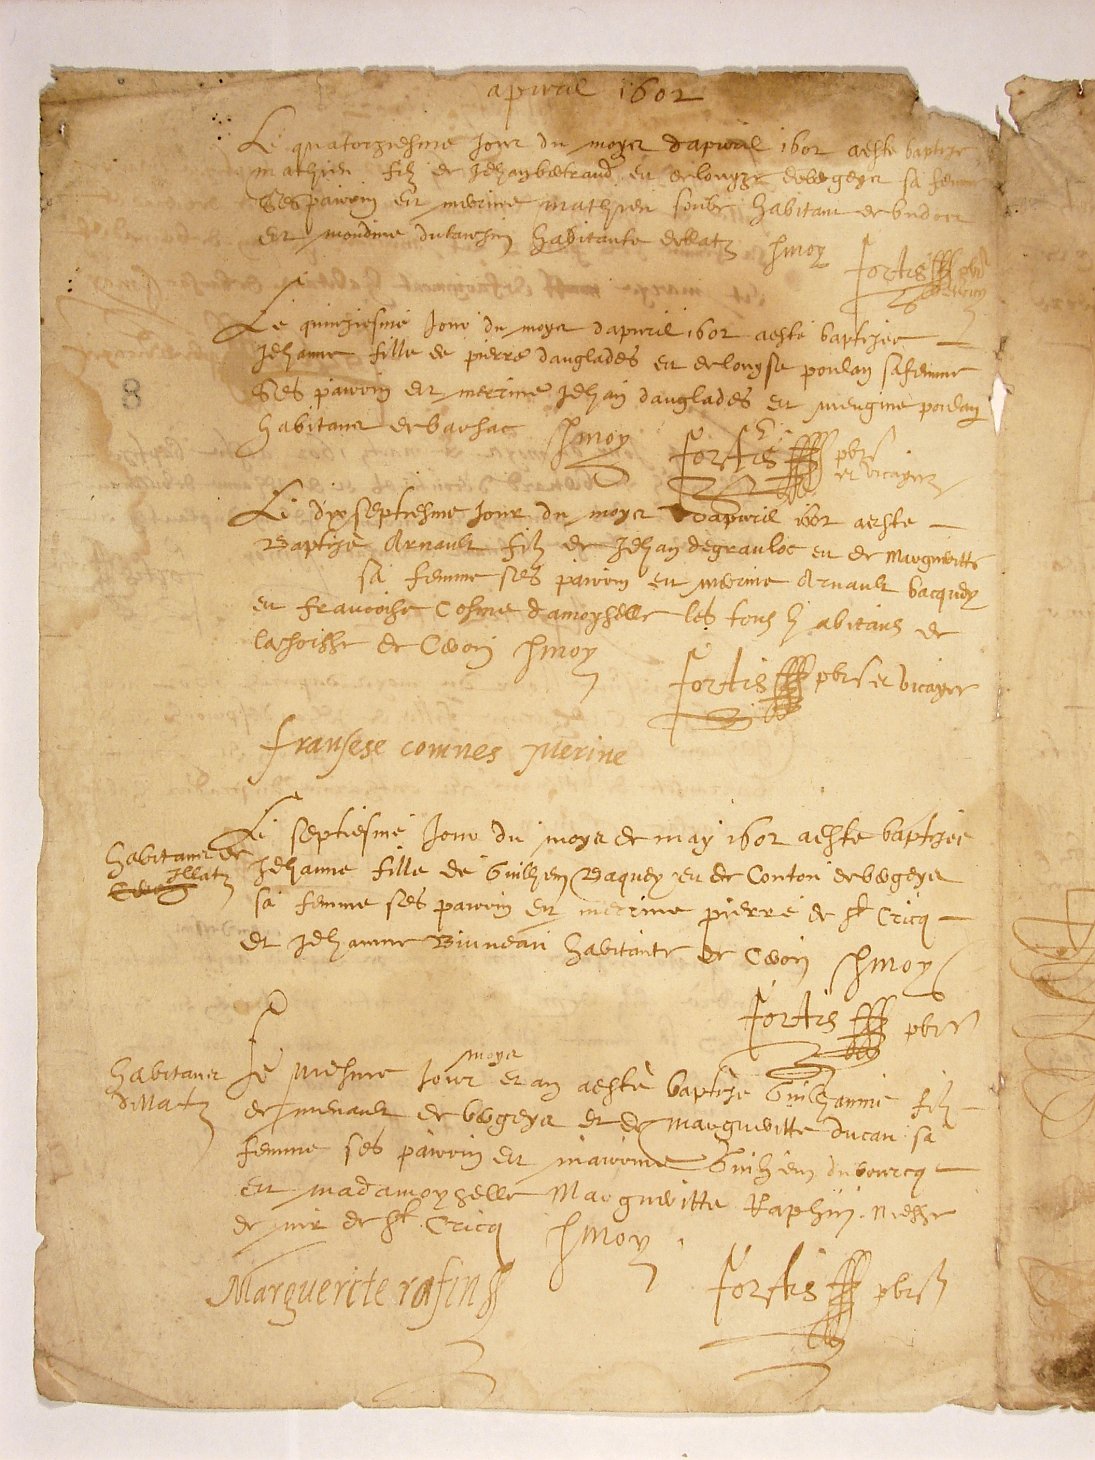 apvril 1602
Le quatorziesme Jour du moys d'apvril 1602 a este baptize
mathieu filz de Jehan betraud et de louyze debergeys sa femme
Ses parrin et merrine mathieu soube habitant de budoss
et mondine dutauzin habitante dillatz pmoy
fortis pbre
et vicaire
Le quinziesme Jour du moys d'apvril 1602 a este baptizee
Jehanne fille de pierre danglades et de louyse poulau sa femme
Ses parrin et merrine Jehan danglades et mengine poulau
habitans de barsac pmoy fortis pbre
et vicayre
Le dixseptiesme Jour du moys d'apvril 1602 a este
Baptize Arnault filz de Jehan degrauloc et de Margueritte
sa femme ses parrin et merrine Arnault bacquey
et francoise Cosme damoyselle les tous habitans de
la proisse de Ceron pmoy
fortis pbre et vicayre
fransese comnes merine
Le septiesme Jour du moys de may 1602 a este baptizee
habitans de
Illatz
Jehanne fille de Guilhem Baquey et de Conton debergeys
sa femme ses parrin et merrine pierre de St Cricq
et Jehanne Biuneau habitante de Ceron pmoy
fortis pbre
habitans
dillatz
Le mesme Jour moys et an a este baptize Guilhaume filz
de menault de bergeys et de Margueritte ducau sa
femme ses parrin et marrine Guilhem dubourcq
et madamoyselle Margueritte Raphin
de mr de St Cricq pmoy
Marguerite rafin
fortis pbre
8